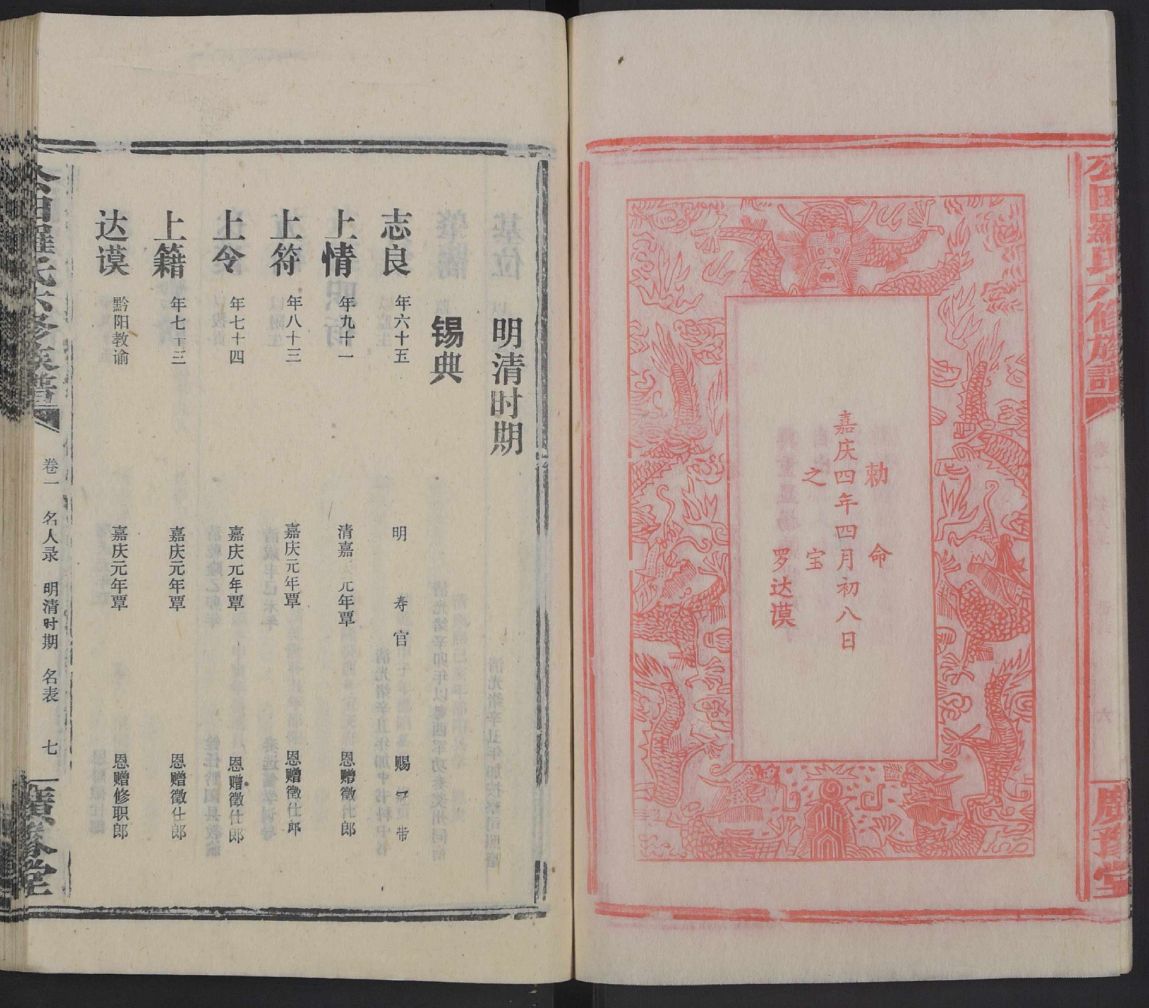 公田羅氏六修族譜
卷一
六
廣蕃堂
勅命
嘉庆四年四月初八日
之宝
罗达谟
明清时期
锡典
志良 年六十五 明 寿官 赐 带
上情 年九十一 清嘉 元年覃 恩赠徵仕郎
上符 年八十三 嘉庆元年覃 恩赠徵仕郎
上令 年七十四 嘉庆元年覃 恩赠徵仕郎
上籍 年七十三 嘉庆元年覃 恩赠徵仕郎
达谟 黔阳教谕 嘉庆元年覃 恩赠修职郎
公田羅氏六修族譜
卷一 名人录 明清时期 名表 七